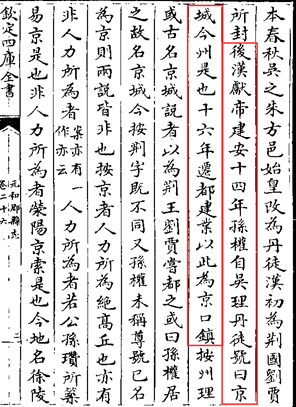 本春秋吳之朱方邑始皇改為丹徒漢初為荆國劉賈
所封後漢獻帝建安十四年孫權自吳理丹徒號曰京
城今州是也十六年遷都建業以此為京口鎮按州理
或古名京城說者以為荆王劉賈嘗都之或曰孫權居
之故名京城今按荆字既不同又孫權未稱尊號已名
為京則兩說皆非也按京者人力所為絶高丘也亦有
非人力所為者案亦有一作亦云人力所為者若公孫瓚所築
易京是也非人力所為者滎陽京索是也今地名徐陵
欽定四庫全書
元和郡縣志
卷二十六
二